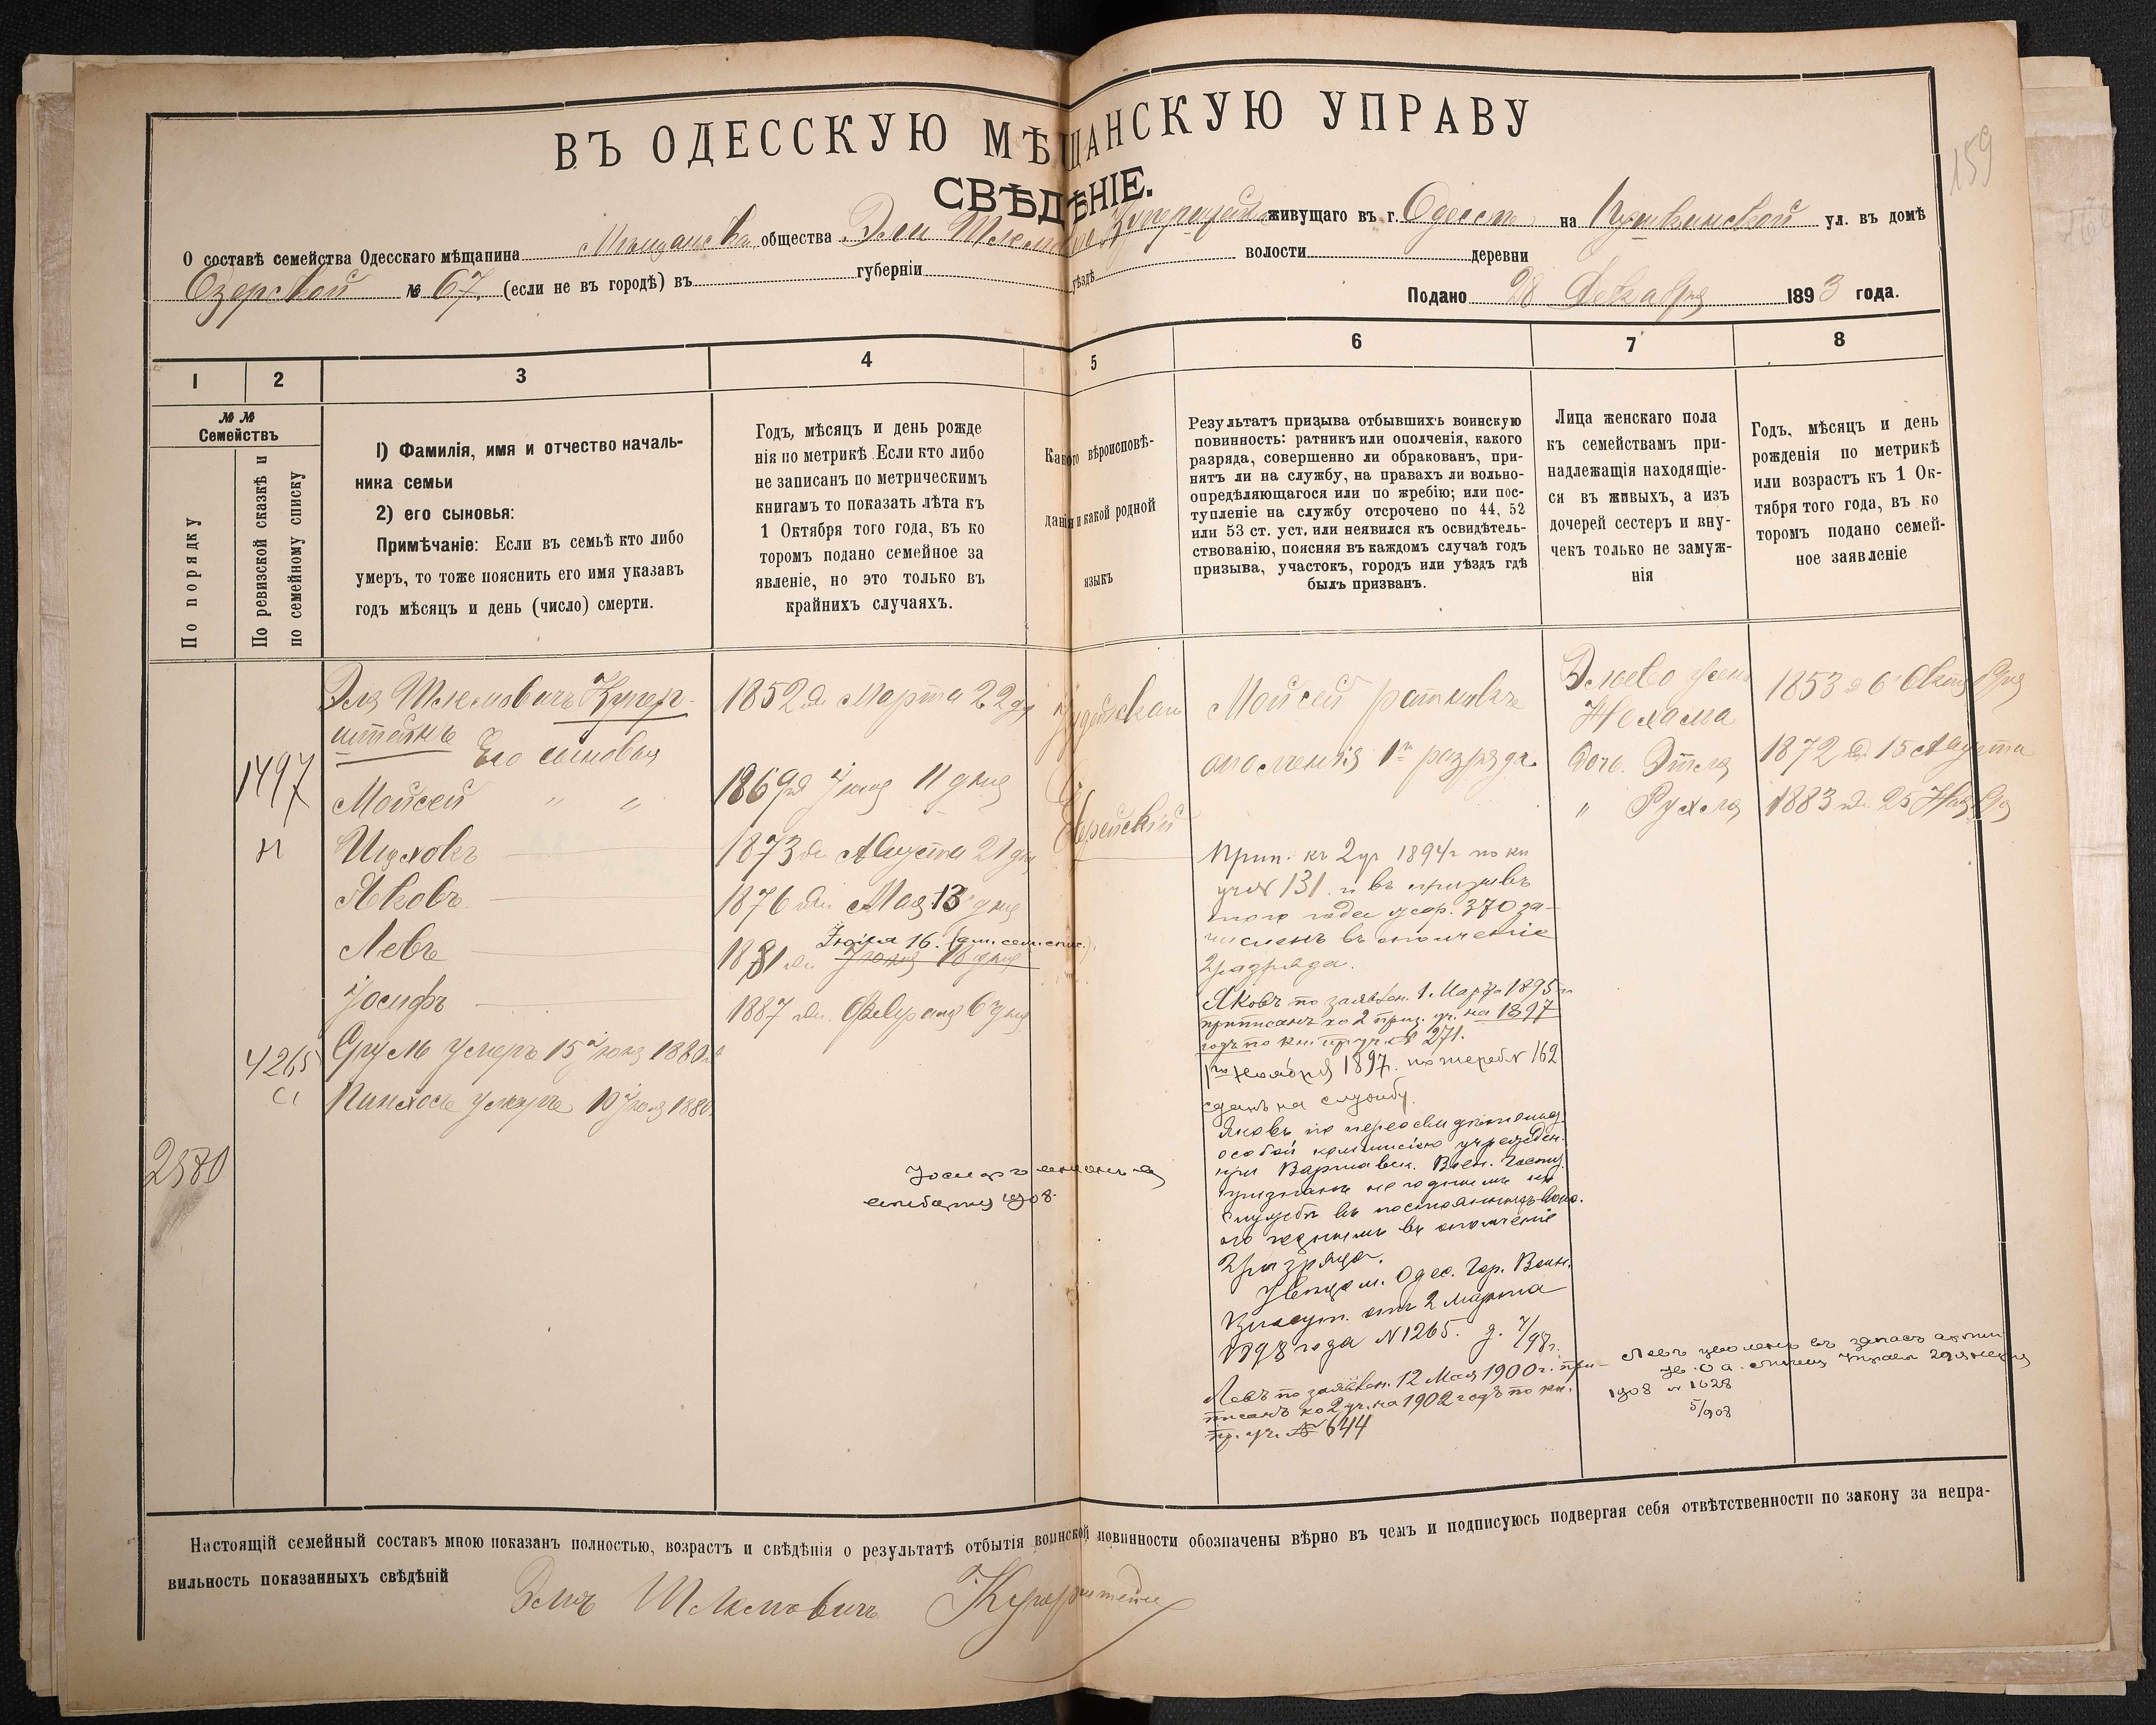 159
ВЪ ОДЕССКУЮ МѢЩАНСКУЮ УПРАВУ
СВѢДѢНІЕ.
О составѣ семейства Одесскаго мѣщанина общества Эли Шлемова живущаго въ г. Одессѣ на ул. въ домѣ
Озерской № 67. (если не въ городѣ) въ губерніи уѣздѣ волости деревни
Подано 28 Декабря 1893 года.
1 2 3 4 5 6 7 8
№ №
Семействъ
По порядку
По ревизской сказкѣ и
по семейному списку
1) Фамилія, имя и отчество началь-
ника семьи
2) его сыновья:
Примѣчаніе: Если въ семьѣ кто либо
умеръ, то тоже пояснить его имя указавъ
годъ мѣсяцъ и день (число) смерти.
Годъ, мѣсяцъ и день рожде
нія по метрикѣ Если кто либо
не записанъ по метрическимъ
книгамъ то показать лѣта къ
1 Октября того года, въ ко
торомъ подано семейное за
явленіе, но это только въ
крайнихъ случаяхъ.
Какого вѣроисповѣ-
данія и какой родной
языкъ
Результатъ призыва отбывшихъ воинскую
повинность: ратникъ или ополченія, какого
разряда, совершенно ли обракованъ, при-
нятъ ли на службу, на правахъ ли вольно-
опредѣляющагося или по жребію; или пос-
тупленіе на службу отсрочено по 44, 52
или 53 ст. уст. или неявился къ освидѣтель-
ствованію, поясняя въ каждомъ случаѣ годъ
призыва, участокъ, городъ или уѣздъ гдѣ
былъ призванъ.
Лица женскаго пола
къ семействамъ при-
надлежащія находящіе-
ся въ живыхъ, а изъ
дочерей сестеръ и вну-
чекъ только не замуж-
нія
Годъ, мѣсяцъ и день
рожденія по метрикѣ
или возрастъ къ 1 Ок-
тября того года, въ ко
торомъ подано семей-
ное заявленіе
Эля Шлемовичъ Купер-
штейнъ
1852 Марта 22 дня
Его сыновья
1497
Моисей " "
1869 Іюня 11 дня
Шулювъ
1873 Августа 21 дня
Яковъ
1876 Мая 13 дня
Левъ
1881 Іюля 16.
Іюня 18 дня
Іосифъ
1887 Февраля 6 дня
4265
Сруль умеръ 15 Іюня 1880
Пинхосъ умеръ 10 Іюня 1880
2580
Іудейскаго
Еврейскій
Моисей ратникъ
ополченія 1го разряда
Прип. къ 2 уч 1894 г по кн
уч № 131 и въ призывъ
того года жер. 370 за-
численъ въ ополченіе
2 разряда.
Яковъ по заявлен. 1 Марта 1895 г.
приписанъ ко 2 приз. уч. на 1897
годъ по кн. пр. уч. № 271.
1го Ноября 1897. по жереб № 162
сданъ на службу.
Яковъ по переосвидѣтельствов.
особой комиссіею учрежден.
при Варшавск. Воен. Госпит.
признанъ негоднымъ къ
службѣ въ постоянныхъ войск.
но годнымъ въ ополченіе
2 разряда.
Одес. Гор. Воин.
Присут. отъ 2 Марта
1898 года № 1265.
Левъ по заявлен. 12 Мая 1900 г. при-
писанъ ко 2 уч. на 1902 годъ по кн.
пр. уч. № 644
Левъ уволенъ въ запасъ арміи
1908 № 1628
5/908
Нехама
1853 6 Октября
доч. Этля
1872 15 Августа
" Рухля
1883 25 Ноября
Настоящій семейный составъ мною показанъ полностью, возрастъ и свѣдѣнія о результатѣ отбытія воинской повинности обозначены вѣрно въ чемъ и подписуюсь подвергая себя отвѣтственности по закону за непра-
вильность показанныхъ свѣдѣній
Эля Шлемовичъ Куперштейнъ